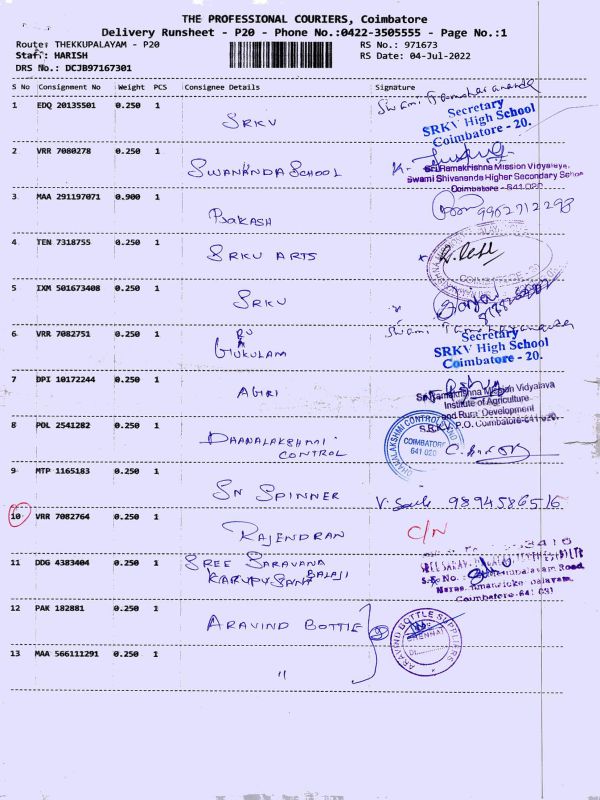 THE PROFESSIONAL COURIERS, Coimbatore
Delivery Runsheet - P20 - Phone No.:0422-3505555 - Page No.:1
Route: THEKKUPALAYAM - P20
Staff: HARISH
DRS No.: DCJB97167301
RS No.: 971673
RS Date: 04-Jul-2022
S No Consignment No Weight PCS Consignee Details Signature
1 EDQ 20135501 0.250 1 SRKV Swami
Secretary
SRKV High School
Coimbatore - 20.
2 VRR 7080278 0.250 1 SWANANDA SCHOOL
Sri Ramakrishna Mission Vidyalaya,
Swami Shivananda Higher Secondary School
Coimbatore - 641 020
3 MAA 291197071 0.900 1 PRAKASH 9962712298
4 TEN 7318755 0.250 1 SRKV ARTS
COIMBATORE
5 IXM 501673408 0.250 1 SRKV
6 VRR 7082751 0.250 1 GURUKULAM Swami
Secretary
SRKV High School
Coimbatore - 20.
7 DPI 10172244 0.250 1 AGRI
Sri Ramakrishna Mission Vidyalaya
Institute of Agriculture
and Rural Development
S.R.K.V. P.O. Coimbatore-641 020.
8 POL 2541282 0.250 1 DHANALAKSHMI CONTROL
DHANALAKSHMI CONTROL
COIMBATORE
641 020
9 MTP 1165183 0.250 1 SN SPINNER 9894586516
10 VRR 7082764 0.250 1 RAJENDRAN C/N
11 DDG 4383404 0.250 1 SREE SARAVANA
BALAJI
S.F. No.
Coimbatore-641 031
12 PAK 182881 0.250 1 ARAVIND BOTTLE
ARAVIND BOTTLE SUPPLIERS
CHENNAI
13 MAA 566111291 0.250 1 "